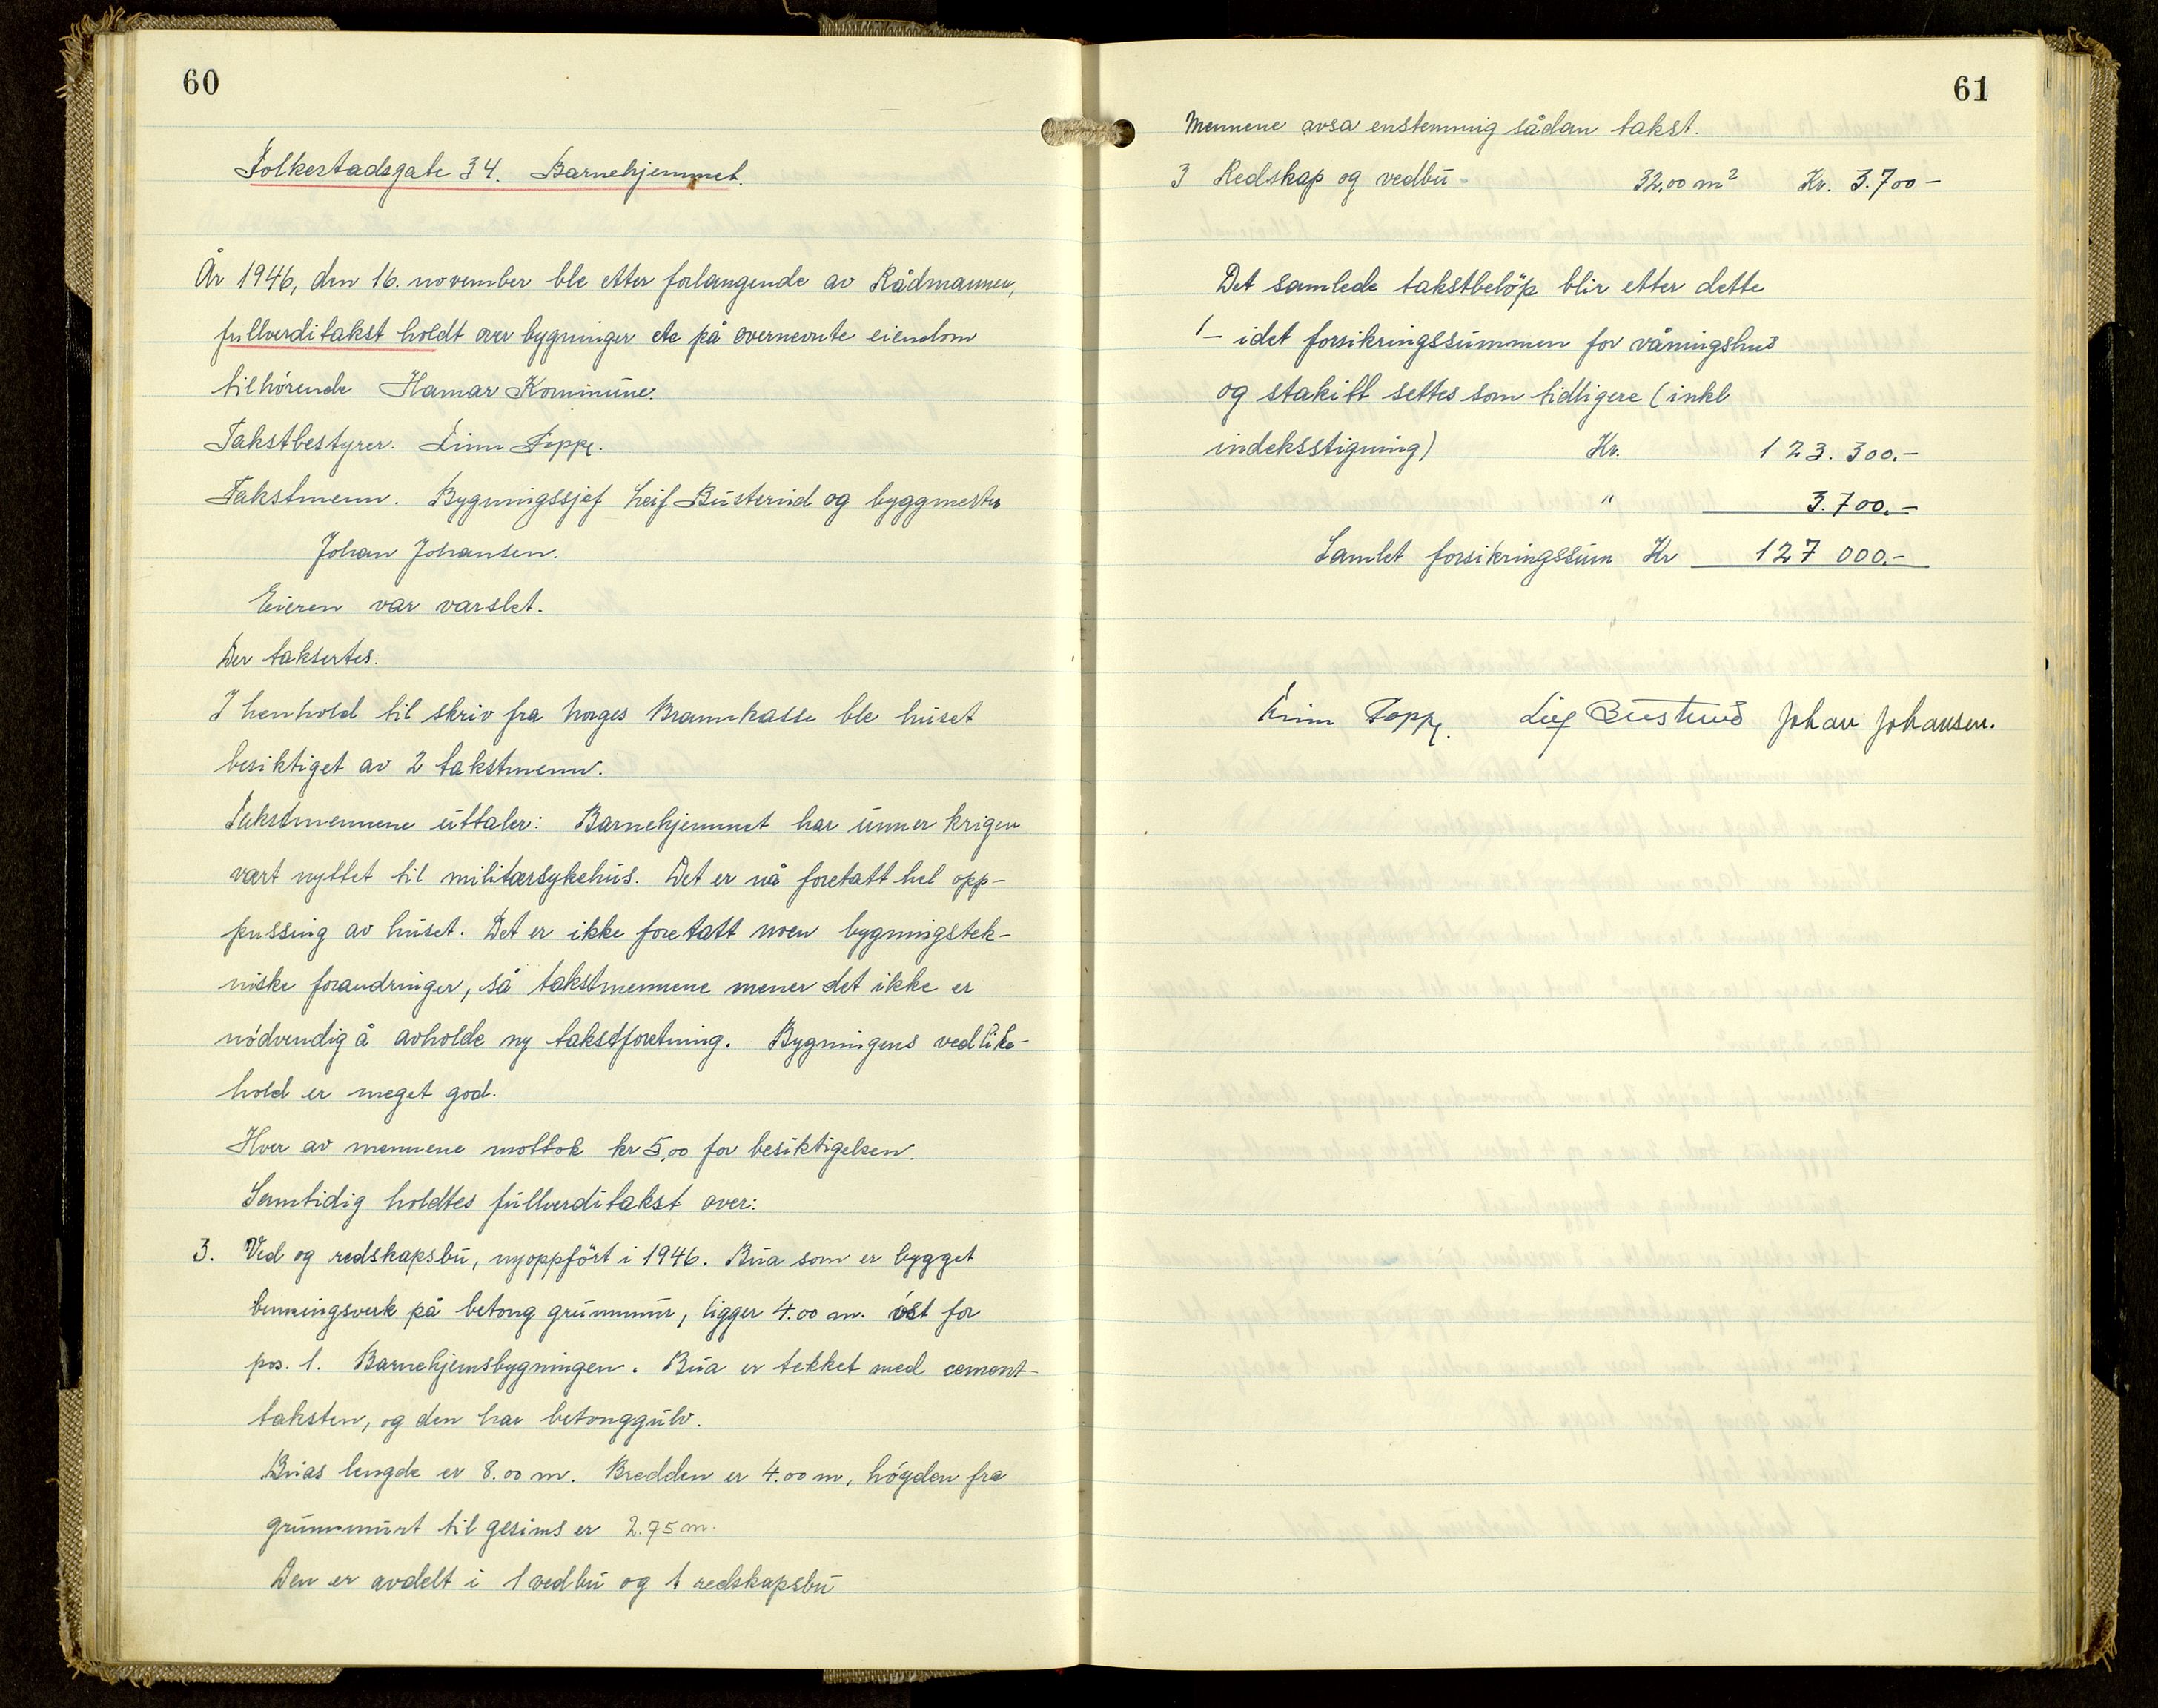 60
Folkestadsgate 34. Barnehjemmet.
År 1946, den 16. november ble etter forlangende av Rådmannen,
fullverditakst holdt over bygninger etc på overnevnte eiendom
tilhörende Hamar Kommune.
Takstbestyrer. Finn Toppe.
Takstmenn. Bygningssjef Leif Busterud og byggmester
Johan Johansen.
Eieren var varslet.
Der taksertes.
I henhold til skriv fra Norges Brannkasse ble huset
besiktiget av 2 takstmenn.
Takstmennene uttaler: Barnehjemmet har unner krigen
vært nyttet til militærsykehus. Det er nå foretatt hel opp-
pussing av huset. Det er ikke foretatt noen bygningstek-
niske forandringer, så takstmennene mener det ikke er
nödvendig å avholde ny takstforetning. Bygningens vedlike-
hold er meget god.
Hver av mennene mottok kr 5,00 for besiktigelsen.
Samtidig holdtes fullverditakst over:
3. Ved og redskapsbu, nyoppfört i 1946. Bua som er bygget
binningsverk på betong grunnmur, ligger 4.00 m. öst for
pos. 1. Barnehjemsbygningen. Bua er tekket med cement-
taksten, og den har betonggulv.
Buas lengde er 8.00 m. Bredden er 4.00 m, höyden fra
grunnmurt til gesims er 2.75 m.
Den er avdelt i 1 vedbu og 1 redskapsbu
61
Mennene avsa enstemmig sådan takst.
3 Redskap og vedbu - 32,00 m² Kr. 3.700 -
Det samlede takstbelöp blir etter dette
1 - idet forsikringssummen for våningshus
og stakitt settes som tidligere (inkl
indeksstigning) Kr. 123.300.-
" 3.700.-
Samlet forsikringssum Kr 127 000.-
Finn Toppe. Leif Busterud Johan Johansen.